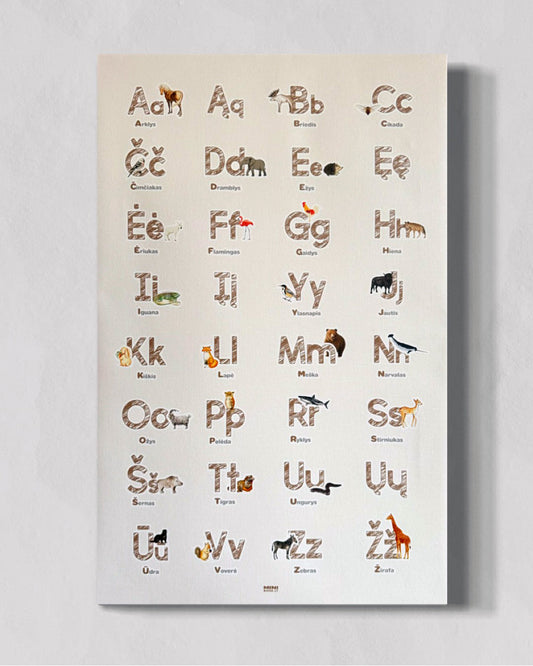 Aa Ąą Bb Cc
Arklys Briedis Cikada
Čč Dd Ee Ęę
Čimčiakas Dramblys Ežys
Ėė Ff Gg Hh
Ėriukas Flamingas Gaidys Hiena
Ii Įį Yy Jj
Iguana Ylasnapis Jautis
Kk Ll Mm Nn
Kiškis Lapė Meška Narvalas
Oo Pp Rr Ss
Ožys Pelėda Ryklys Stirniukas
Šš Tt Uu Ųų
Šernas Tigras Ungurys
Ūū Vv Zz Žž
Ūdra Voverė Zebras Žirafa
MINI